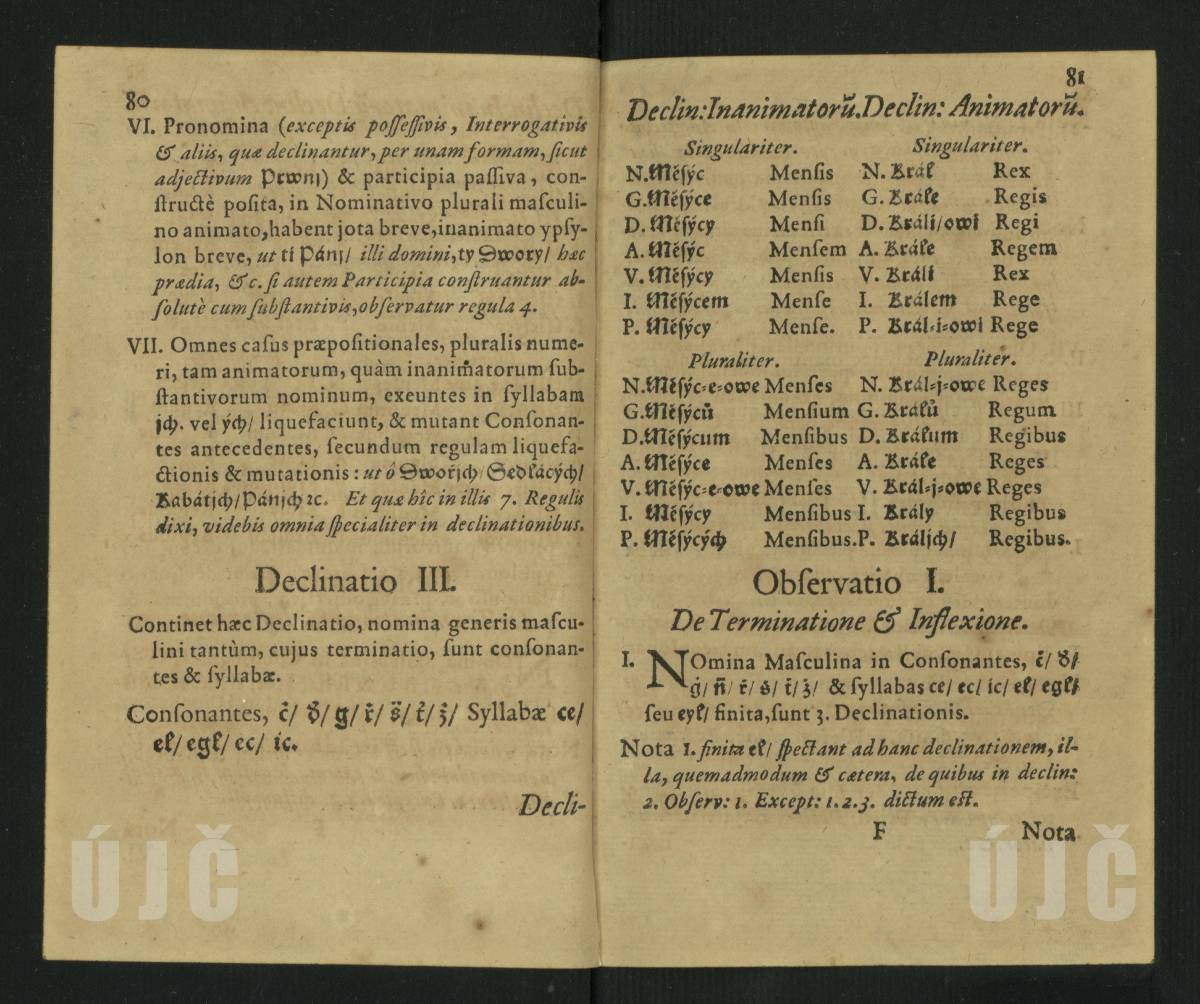 80
VI. Pronomina (exceptis poſſeſſivis, Interrogativis
& aliis, quæ declinantur, per unam formam, ſicut
adjectivum Prwnj) & participia paſſiva, con-
ſtructè poſita, in Nominativo plurali maſculi-
no animato, habent jota breve, inanimato ypſy-
lon breve, ut ti Pánj/ illi domini, ty Dwory/ hæc
prædia, &c. ſi autem Participia conſtruantur ab-
ſolutè cum ſubſtantivis, obſervatur regula 4.
VII. Omnes caſus præpoſitionales, pluralis nume-
ri, tam animatorum, quàm inanimatorum ſub-
ſtantivorum nominum, exeuntes in ſyllabam
jch. vel ých/ liquefaciunt, & mutant Conſonan-
tes antecedentes, ſecundum regulam liquefa-
ctionis & mutationis: ut ó Dwořjch/ Sedlácých/
Kabátjch/ Pánjch ꝛc. Et quæ hîc in illis 7. Regulis
dixi, videbis omnia ſpecialiter in declinationibus.
Declinatio III.
Continet hæc Declinatio, nomina generis maſcu-
lini tantùm, cujus terminatio, ſunt conſonan-
tes & ſyllabæ.
Conſonantes, č/ ď/ g/ ř/ š/ ť/ ž/ Syllabæ ce/
el/ egl/ ec/ ic.
Decli-
ÚJČ
81
Declin: Inanimatorũ. Declin: Animatorũ.
Singulariter. Singulariter.
N. Měſýc Menſis N. Král Rex
G. Měſýce Menſis G. Krále Regis
D. Měſýcy Menſi D. Králi/owi Regi
A. Měſýc Menſem A. Krále Regem
V. Měſýcy Menſis V. Králi Rex
I. Měſýcem Menſe I. Králem Rege
P. Měſýcy Menſe. P. Král⸗i⸗owi Rege
Pluraliter. Pluraliter.
N. Měſýc⸗e⸗owe Menſes N. Král⸗j⸗owe Reges
G. Měſýců Menſium G. Králů Regum
D. Měſýcum Menſibus D. Králum Regibus
A. Měſýce Menſes A. Krále Reges
V. Měſýc⸗e⸗owe Menſes V. Král⸗j⸗owe Reges
I. Měſýcy Menſibus I. Krály Regibus
P. Měſýcých Menſibus. P. Králjch/ Regibus.
Obſervatio I.
De Terminatione & Inflexione.
I. NOmina Maſculina in Conſonantes, č/ ď/
ġ/ ň/ ř/ š/ ť/ ž/ & ſyllabas ce/ ec/ ic/ el/ egl/
ſeu eyl/ finita, ſunt 3. Declinationis.
Nota 1. finita el/ ſpectant ad hanc declinationem, il-
la, quemadmodum & cætera, de quibus in declin:
2. Obſerv: 1. Except: 1. 2. 3. dictum eſt.
F Nota
ÚJČ